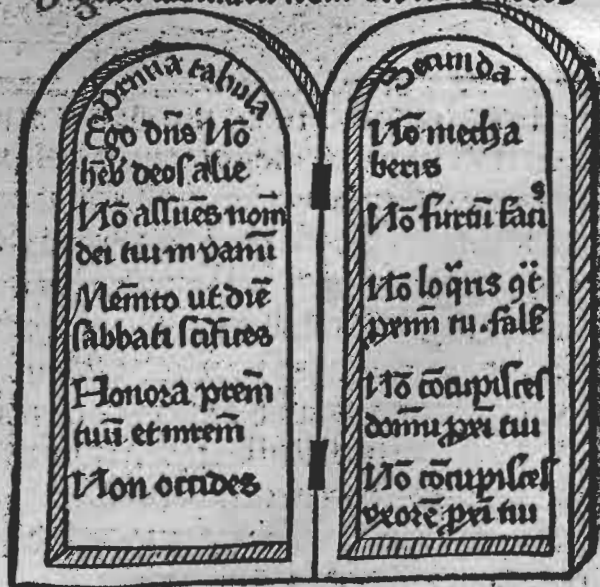 Prima tabula
Ego dn̄s Nō
hēb deos alie
Nō assūes nom̄
dei tui in vanū
Mem̄to ut diē
sabbati sc̄ifices
Honora prem̄
tuū et mrem̄
Non occides
Secunda
Nō mecha
beris
Nō furtū facis
Nō loq̄ris 9t̄
prim̄ tu. fals̄
Nō cōcupisces
domū pxi tui
Nō cōcupisces
vxorē pxi tui